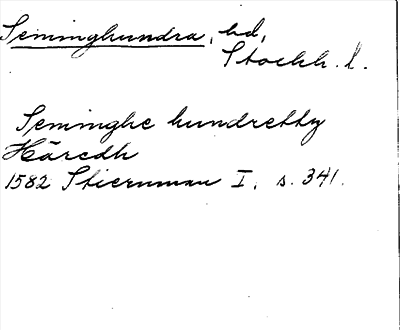 Seminghundra, hd,
Stockh. l.
Seminghe hundretty
Häredh
1582 Stiernman I, s. 341.